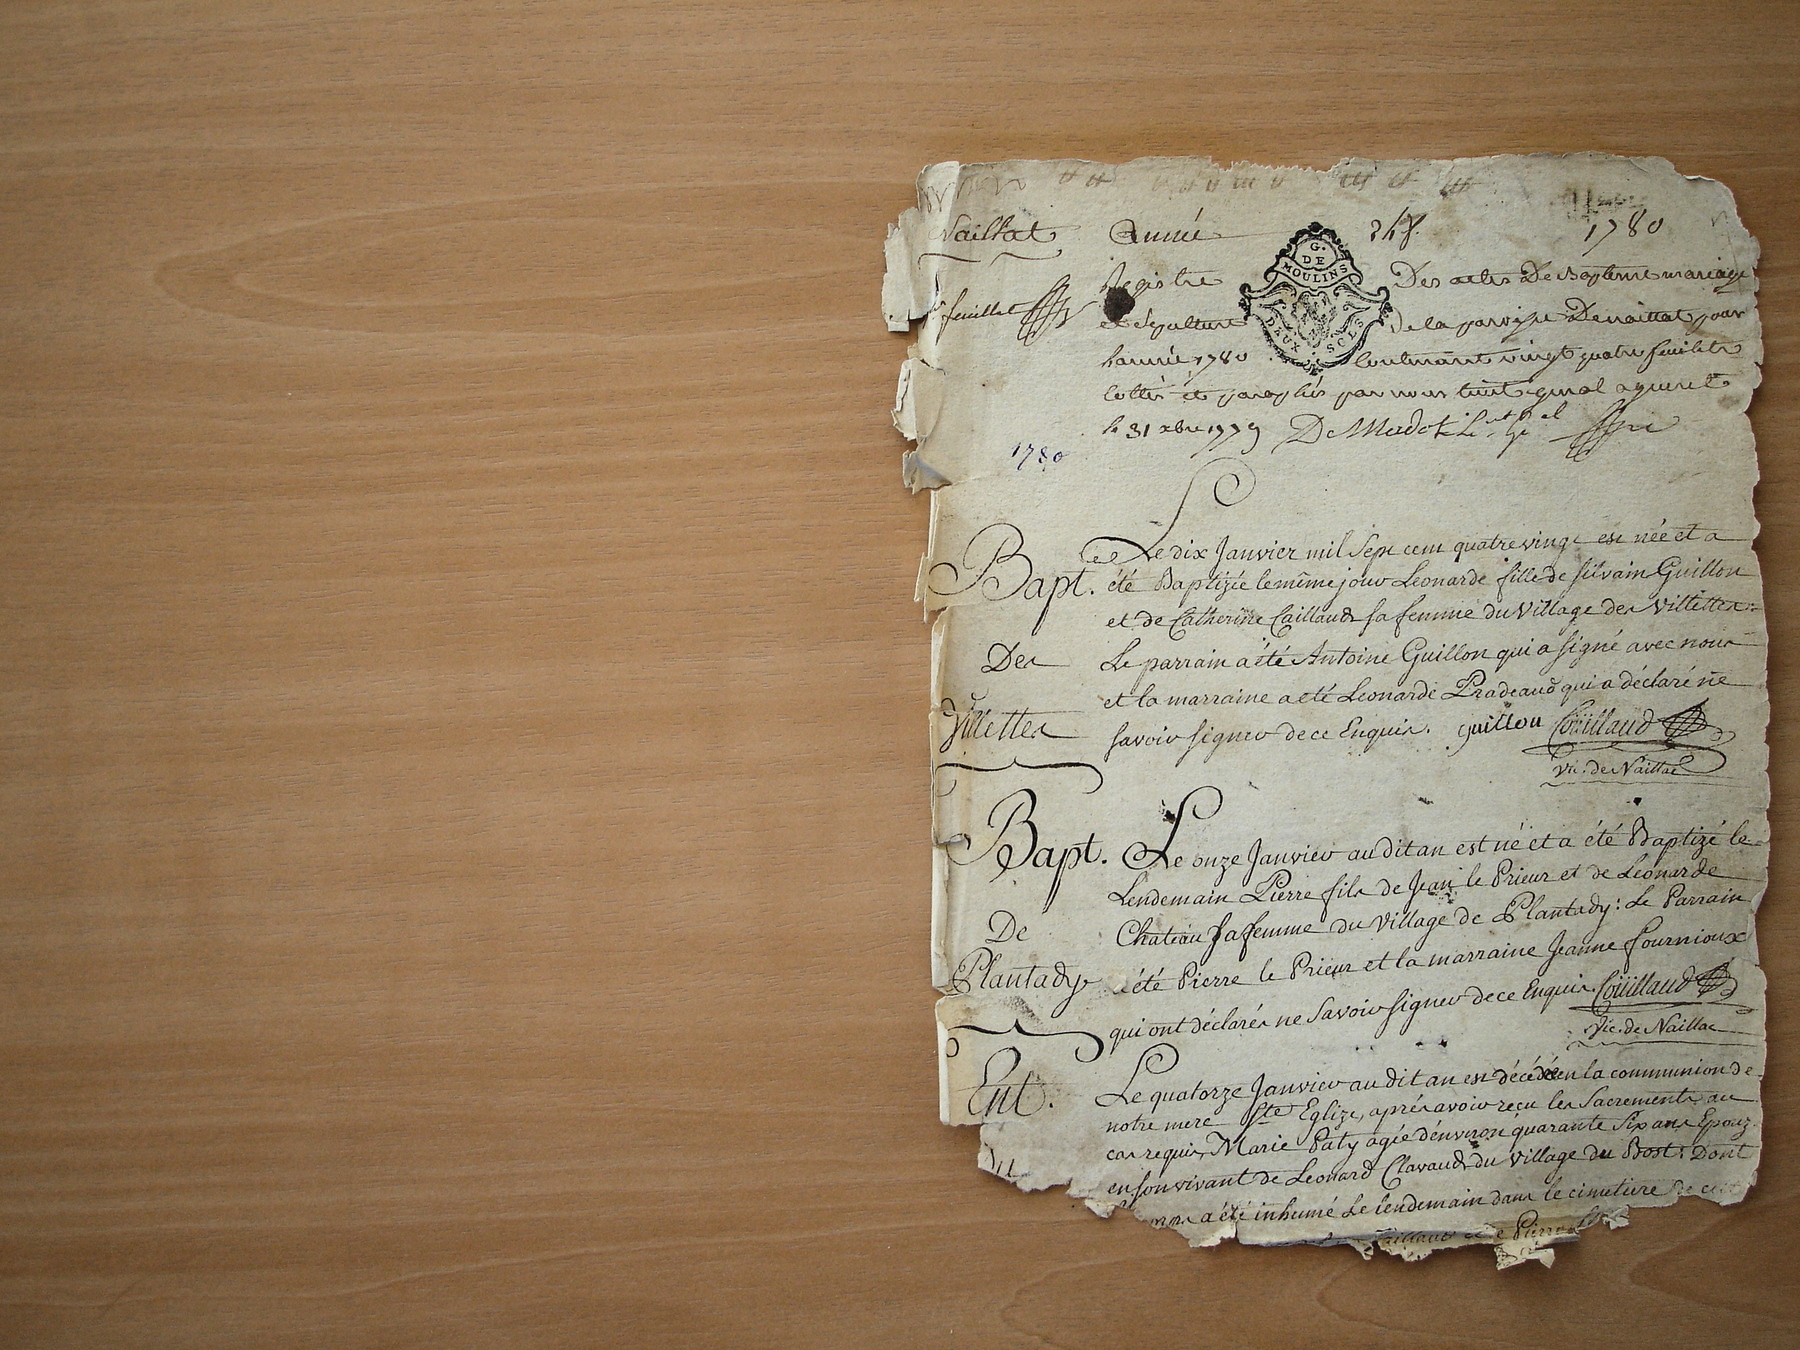 Naillat Année 1780
G. DE MOULINS
DEUX SOLS
feuillet
Registre Des actes De Bapteme mariage
et sepulture de la paroisse De naillat pour
lannée 1780 Contenant vingt quatre feuillets
cottés et paraphés par nous lieut. gnal a gueret
le 31 xbre 1779 De Madot Lnt gel
1780
Bapt. Le dix Janvier mil Sept cent quatrevingt est née et a
été Baptizée le même jour Leonarde fille de Silvain Guillon
et de Catherine Caillaud sa femme du Village des Villettes:
Des Le parrain a été Antoine Guillon qui a signé avec nous
et la marraine a eté Leonarde Pradeaud qui a déclaré ne
Villettes savoir signer de ce Enquis. guillon Coüillaud
vic. de Naillac
Bapt. Le onze Janvier au dit an est né et a été Baptizé le
Lendemain Pierre fils de Jean le Prieur et de Léonarde
De Chateau sa femme du Village de Plantady: Le Parrain
Plantady a été Pierre le Prieur et la marraine Jeanne fournioux
qui ont déclarés ne Savoir signer de ce Enquis. Coüillaud
Vic. de Naillac
Ent. Le quatorze Janvier au dit an est décédée en la communion de
notre mere Ste Eglize, après avoir reçu les Sacrements au
cas requis, Marie Paty agée d'environ quarante Six ans Epouz.
Du en son vivant de Leonard Clavaud du village du Bost: Dont
a été inhumé Le lendemain dans le cimetiere de cette
et de Pierre